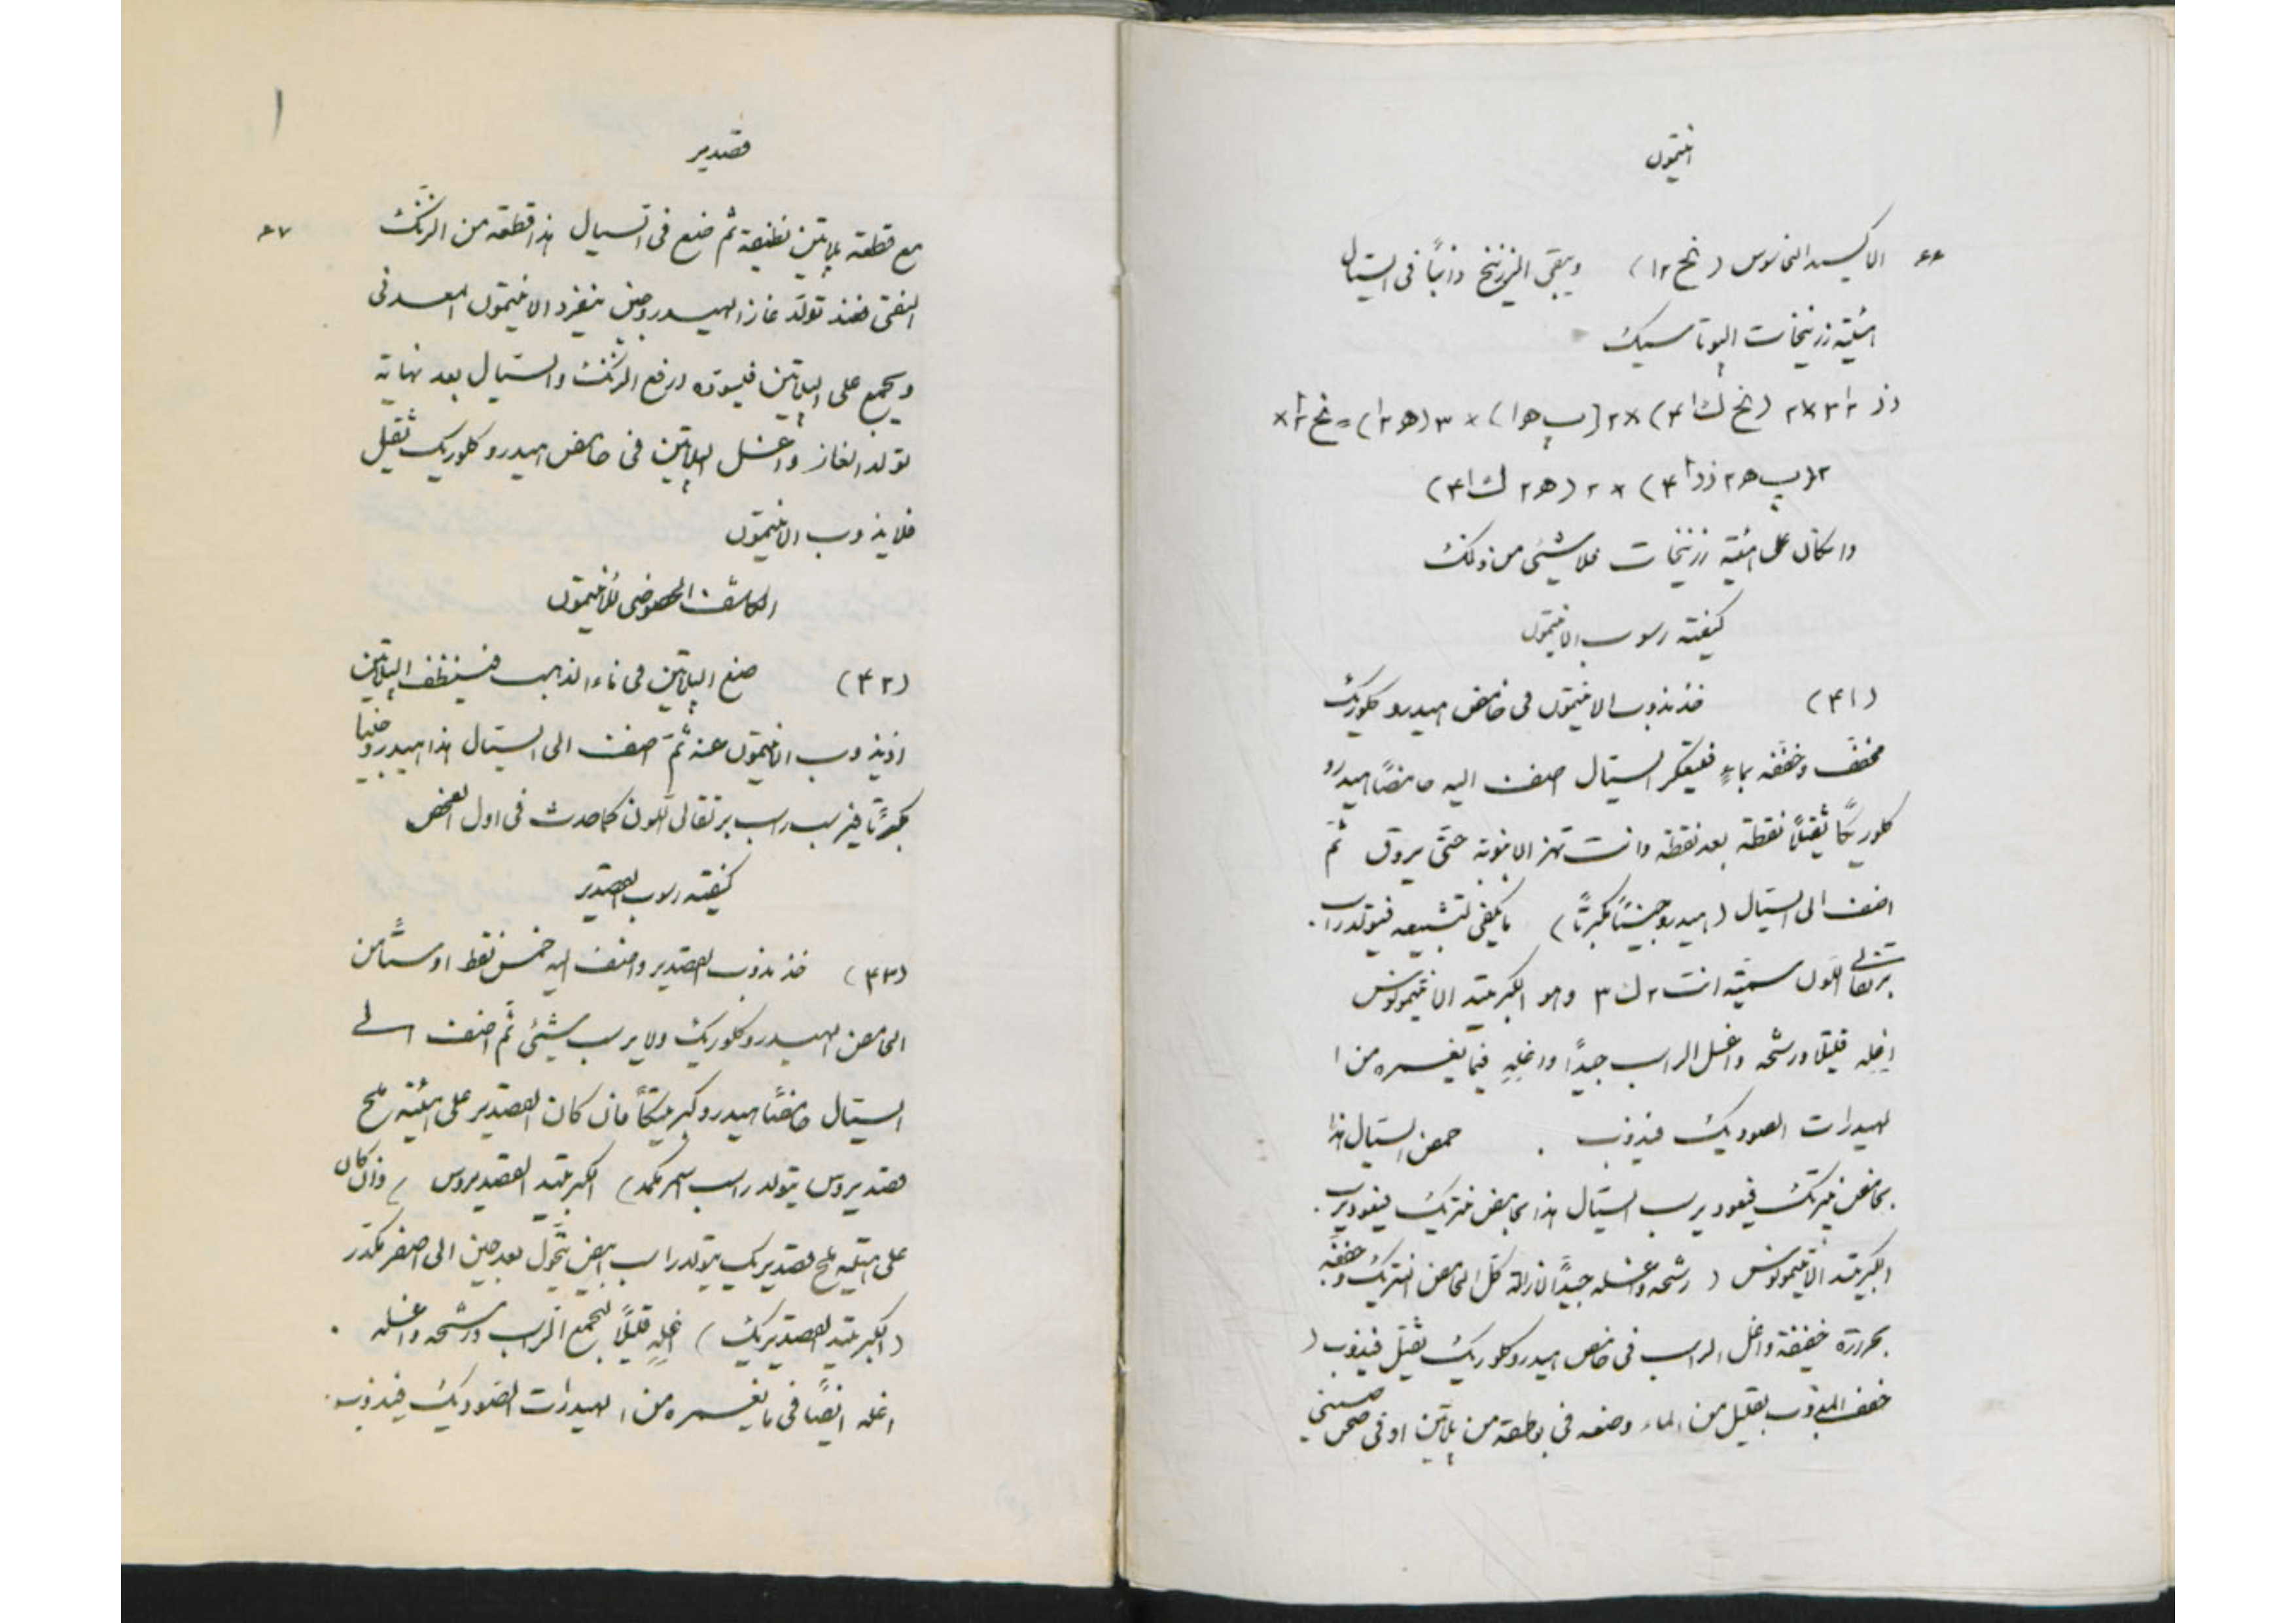 انتيمون
٤٤ الاكسيد النحاسوس (نح ٢ ا) ويبقى الزرنيخ ذائبًا فى السيّال
هيئية زرنيخات البوتاسيك
ذز ٢ ا ٣ × ٢ (نح ك ا ٤) × ٢ (ب ه ا) × ٣ (ه ٢ ا) = نح ٢ ا ×
٢ (ب ه ٢ ذز ا ٤) × ٢ (ه ٢ ك ا ٤)
وان كان على هيئة زرنيخات فلا شيئى من ذلك
كيفية رسوب الانتيمون
(٤١) خذ مذوب الانتيمون فى حامض هيدروكلوريك
مخفّف وخفّفه بماءٍ فيتعكر السيّال اضف اليه حامضًا هيدرو
كلوريكًا ثقيلًا نقطة بعد نقطة وانت تهز الانبوبة حتى يروق ثم
اضف الى السيّال (هيدروجينًا مكبرتًا) ما يكفى لتشبيعه فيتولد راسب
برتقالى اللون سميّته انت ٢ ك ٣ وهو الكبريتيد الانتيمونوس
اغله قليلا ورشحه واغسل الراسب جيدًا واغلِهِ فيما يغمره من ا
لهيدرات الصوديك فيذوب . حمض السيّال هذا
بحامض نيتريك فيعود يرسب السيّال هذا بحامض نتريك فيعود يرسب
الكبريتيد الانتيمونوس ( رشحه واغسله جيدًا لازالة كل الحامض النتريك وخففه
بحرارة خفيفة واغل الراسب فى حامض هيدروكلوريك ثقيل فيذوب (
خفف المذوب بقليل من الماء وضعه فى بوطقة من پلاتين او فى صحن صينى
قصدير
٤٧ مع قطعة پلاتين نظيفة ثم ضع فى السيال هذا قطعة من الزنك
النقى فعند تولّد غاز الهيدروجين ينفرد الانتيمون المعدنى
ويجمع على الپلاتين فيسوده ارفع الزنك والسيّال بعد نهاية
تولد الغاز واغسل الپلاتين فى حامض هيدروكلوريك ثقيل
فلا يذوب الانتيمون
الكاشف الخصوصى للانتيمون
(٤٢) ضع الپلاتين فى ماء الذهب فينظف الپلاتين
اذ يذوب الانتيمون عنه ثمّ اضف الى السيّال هذا هيدروجينا
مكبرتًا فيرسب راسب برتقالى اللون كما حدث فى اول الفحص
كيفية رسوب القصدير
(٤٣) خذ مذوب القصدير واضف اليه خمس نقط او ستًّا من
الحامض الهيدروكلوريك ولا يرسب شيئى ثم اضف الى
السيّال حامضًا هيدروكبريتيكًا فان كان القصدير على هيئة ملح
قصديروس يتولد راسب اسمر مكمد) الكبريتيد القصديروس ) وان كان
على هيئة ملح قصديريك يتولد راسب ابيض يتحول بعد حين الى اصفر مكدّر
(الكبريتيد القصديريك) اغله قليلًا ليجمع الراسب ورشحه واغسله .
اغله ايضًا فى ما يغمره من الهيدرات الصوديك فيذوب .